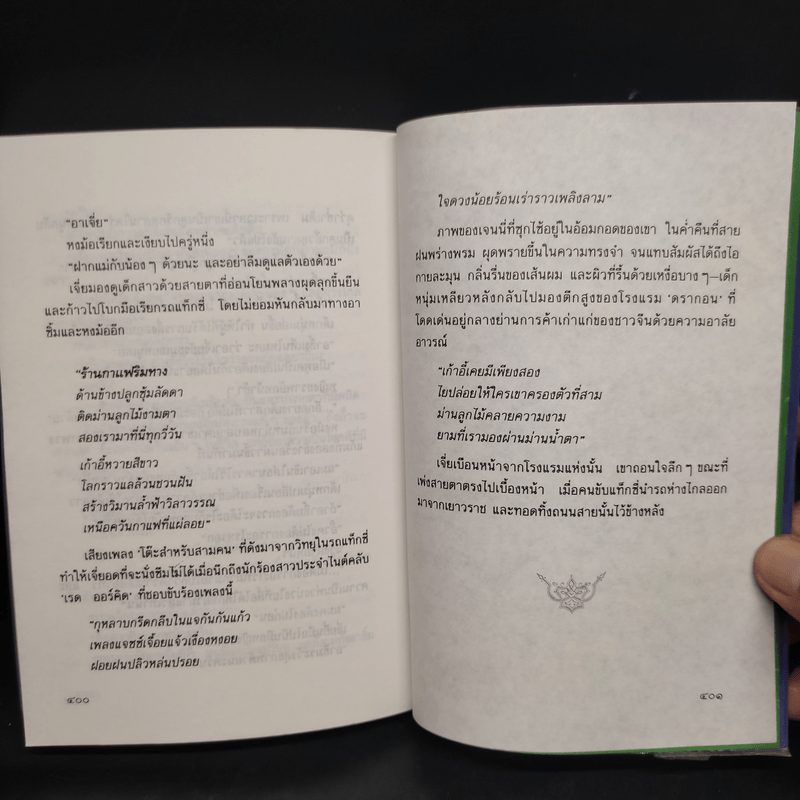 "อาเจี่ย"
หงม้อเรียกและเงียบไปครู่หนึ่ง
"ฝากแม่กับน้องๆ ด้วยนะ และอย่าลืมดูแลตัวเองด้วย"
เจี่ยมองดูเด็กสาวด้วยสายตาที่อ่อนโยนพลางผุดลุกขึ้นยืน
และก้าวไปโบกมือเรียกรถแท็กซี่ โดยไม่ยอมหันกลับมาทางอา
ซิ้มและหงม้ออีก
"ร้านกาแฟริมทาง
ด้านข้างปลูกซุ้มลัดดา
ติดม่านลูกไม้งามตา
สองเรามาที่นี่ทุกวี่วัน
เก้าอี้หวายสีขาว
โลกราวแลล้วนชวนฝัน
สร้างวิมานล้ำฟ้าวิลาวรรณ
เหนือควันกาแฟที่แผ่ลอย"
เสียงเพลง 'โต๊ะสำหรับสามคน' ที่ดังมาจากวิทยุในรถแท็กซี่
ทำให้เจี่ยอดที่จะนั่งซึมไม่ได้เมื่อนึกถึงนักร้องสาวประจำไนต์คลับ
'เรด ออร์คิด' ที่ชอบขับร้องเพลงนี้
"กุหลาบกรีดกลีบในแจกันกันแก้ว
เพลงแจซซ์เจื้อยแจ้วเงื่องหงอย
ฝอยฝนปลิวหล่นปรอย
๔๐๐
ใจดวงน้อยร้อนเร่าราวเพลิงลาม"
ภาพของเจนนี่ที่ซุกไซ้อยู่ในอ้อมกอดของเขา ในค่ำคืนที่สาย
ฝนพร่างพรม ผุดพรายขึ้นในความทรงจำ จนแทบสัมผัสได้ถึงไอ
กายละมุน กลิ่นรื่นของเส้นผม และผิวที่รื้นด้วยเหงื่อบางๆ—เด็ก
หนุ่มเหลียวหลังกลับไปมองตึกสูงของโรงแรม 'ดรากอน' ที่
โดดเด่นอยู่กลางย่านการค้าเก่าแก่ของชาวจีนด้วยความอาลัย
อาวรณ์
"เก้าอี้เคยมีเพียงสอง
ไยปล่อยให้ใครเขาครองตัวที่สาม
ม่านลูกไม้คลายความงาม
ยามที่เรามองผ่านม่านน้ำตา"
เจี่ยเบือนหน้าจากโรงแรมแห่งนั้น เขาถอนใจลึกๆ ขณะที่
เพ่งสายตาตรงไปเบื้องหน้า เมื่อคนขับแท็กซี่นำรถห่างไกลออก
มาจากเยาวราช และทอดทิ้งถนนสายนั้นไว้ข้างหลัง
๔๐๑